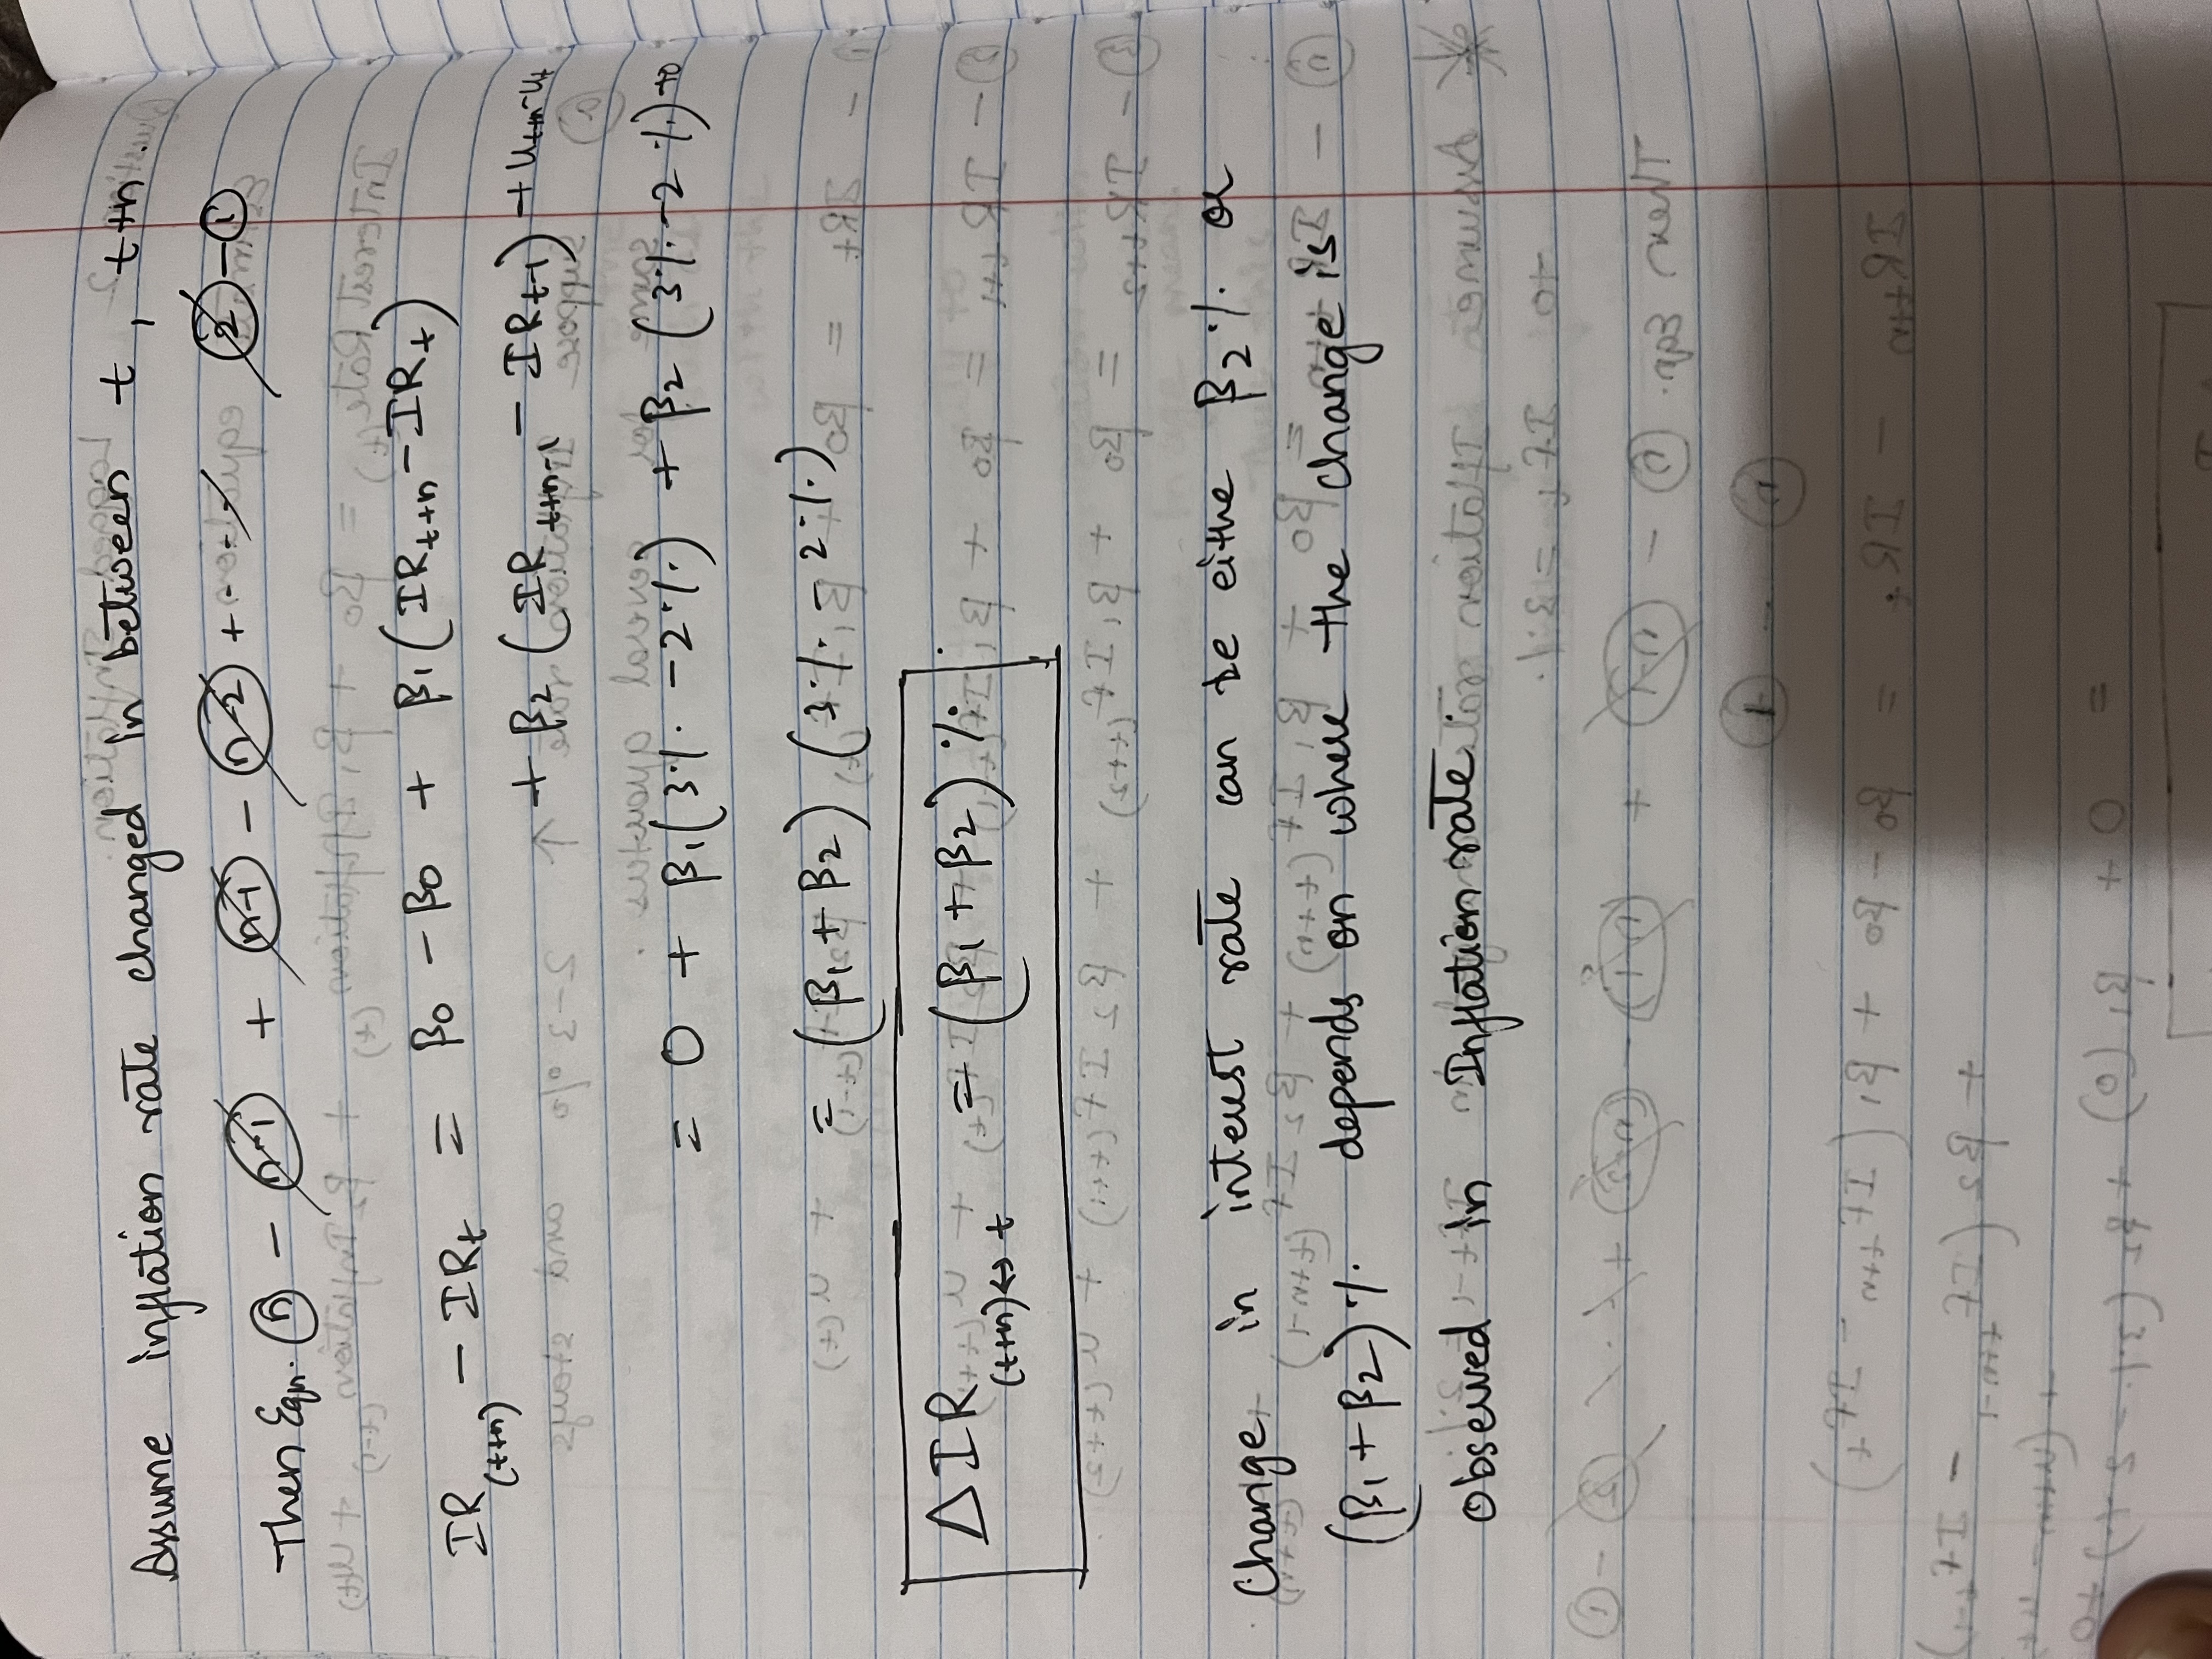 Assume inflation rate changed in between t, t+n.
Then Eqn. (n) - (n-1) + (n-1) - (n-2) + - - - (2) - (1)
IR(t+n) - IRt = β0 - β0 + β1 (IRt+n - IRt)
+ β2 (IRt+n-1 - IRt-1) + Ut+n - Ut
= 0 + β1 (3% - 2%) + β2 (3% - 2%) + 0
= (β1 + β2) (3% - 2%)
ΔIR(t+n)↔t = (β1 + β2) %.
Change in interest rate can be eithe β2 % or
(β1 + β2) % depends on where the change is
observed in Inflation rate.